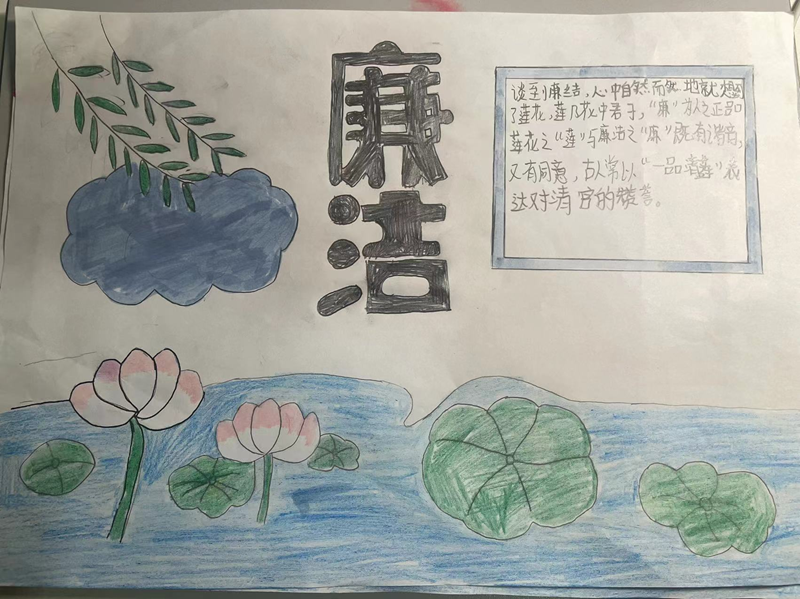 廉
洁
谈到廉结，心中自然而然地就想到
了莲花，莲乃花中君子，“廉”为人之正品
莲花之“莲”与廉洁之“廉”既有谐音，
又有同意，古人常以“一品清莲”表
达对清官的赞誉。